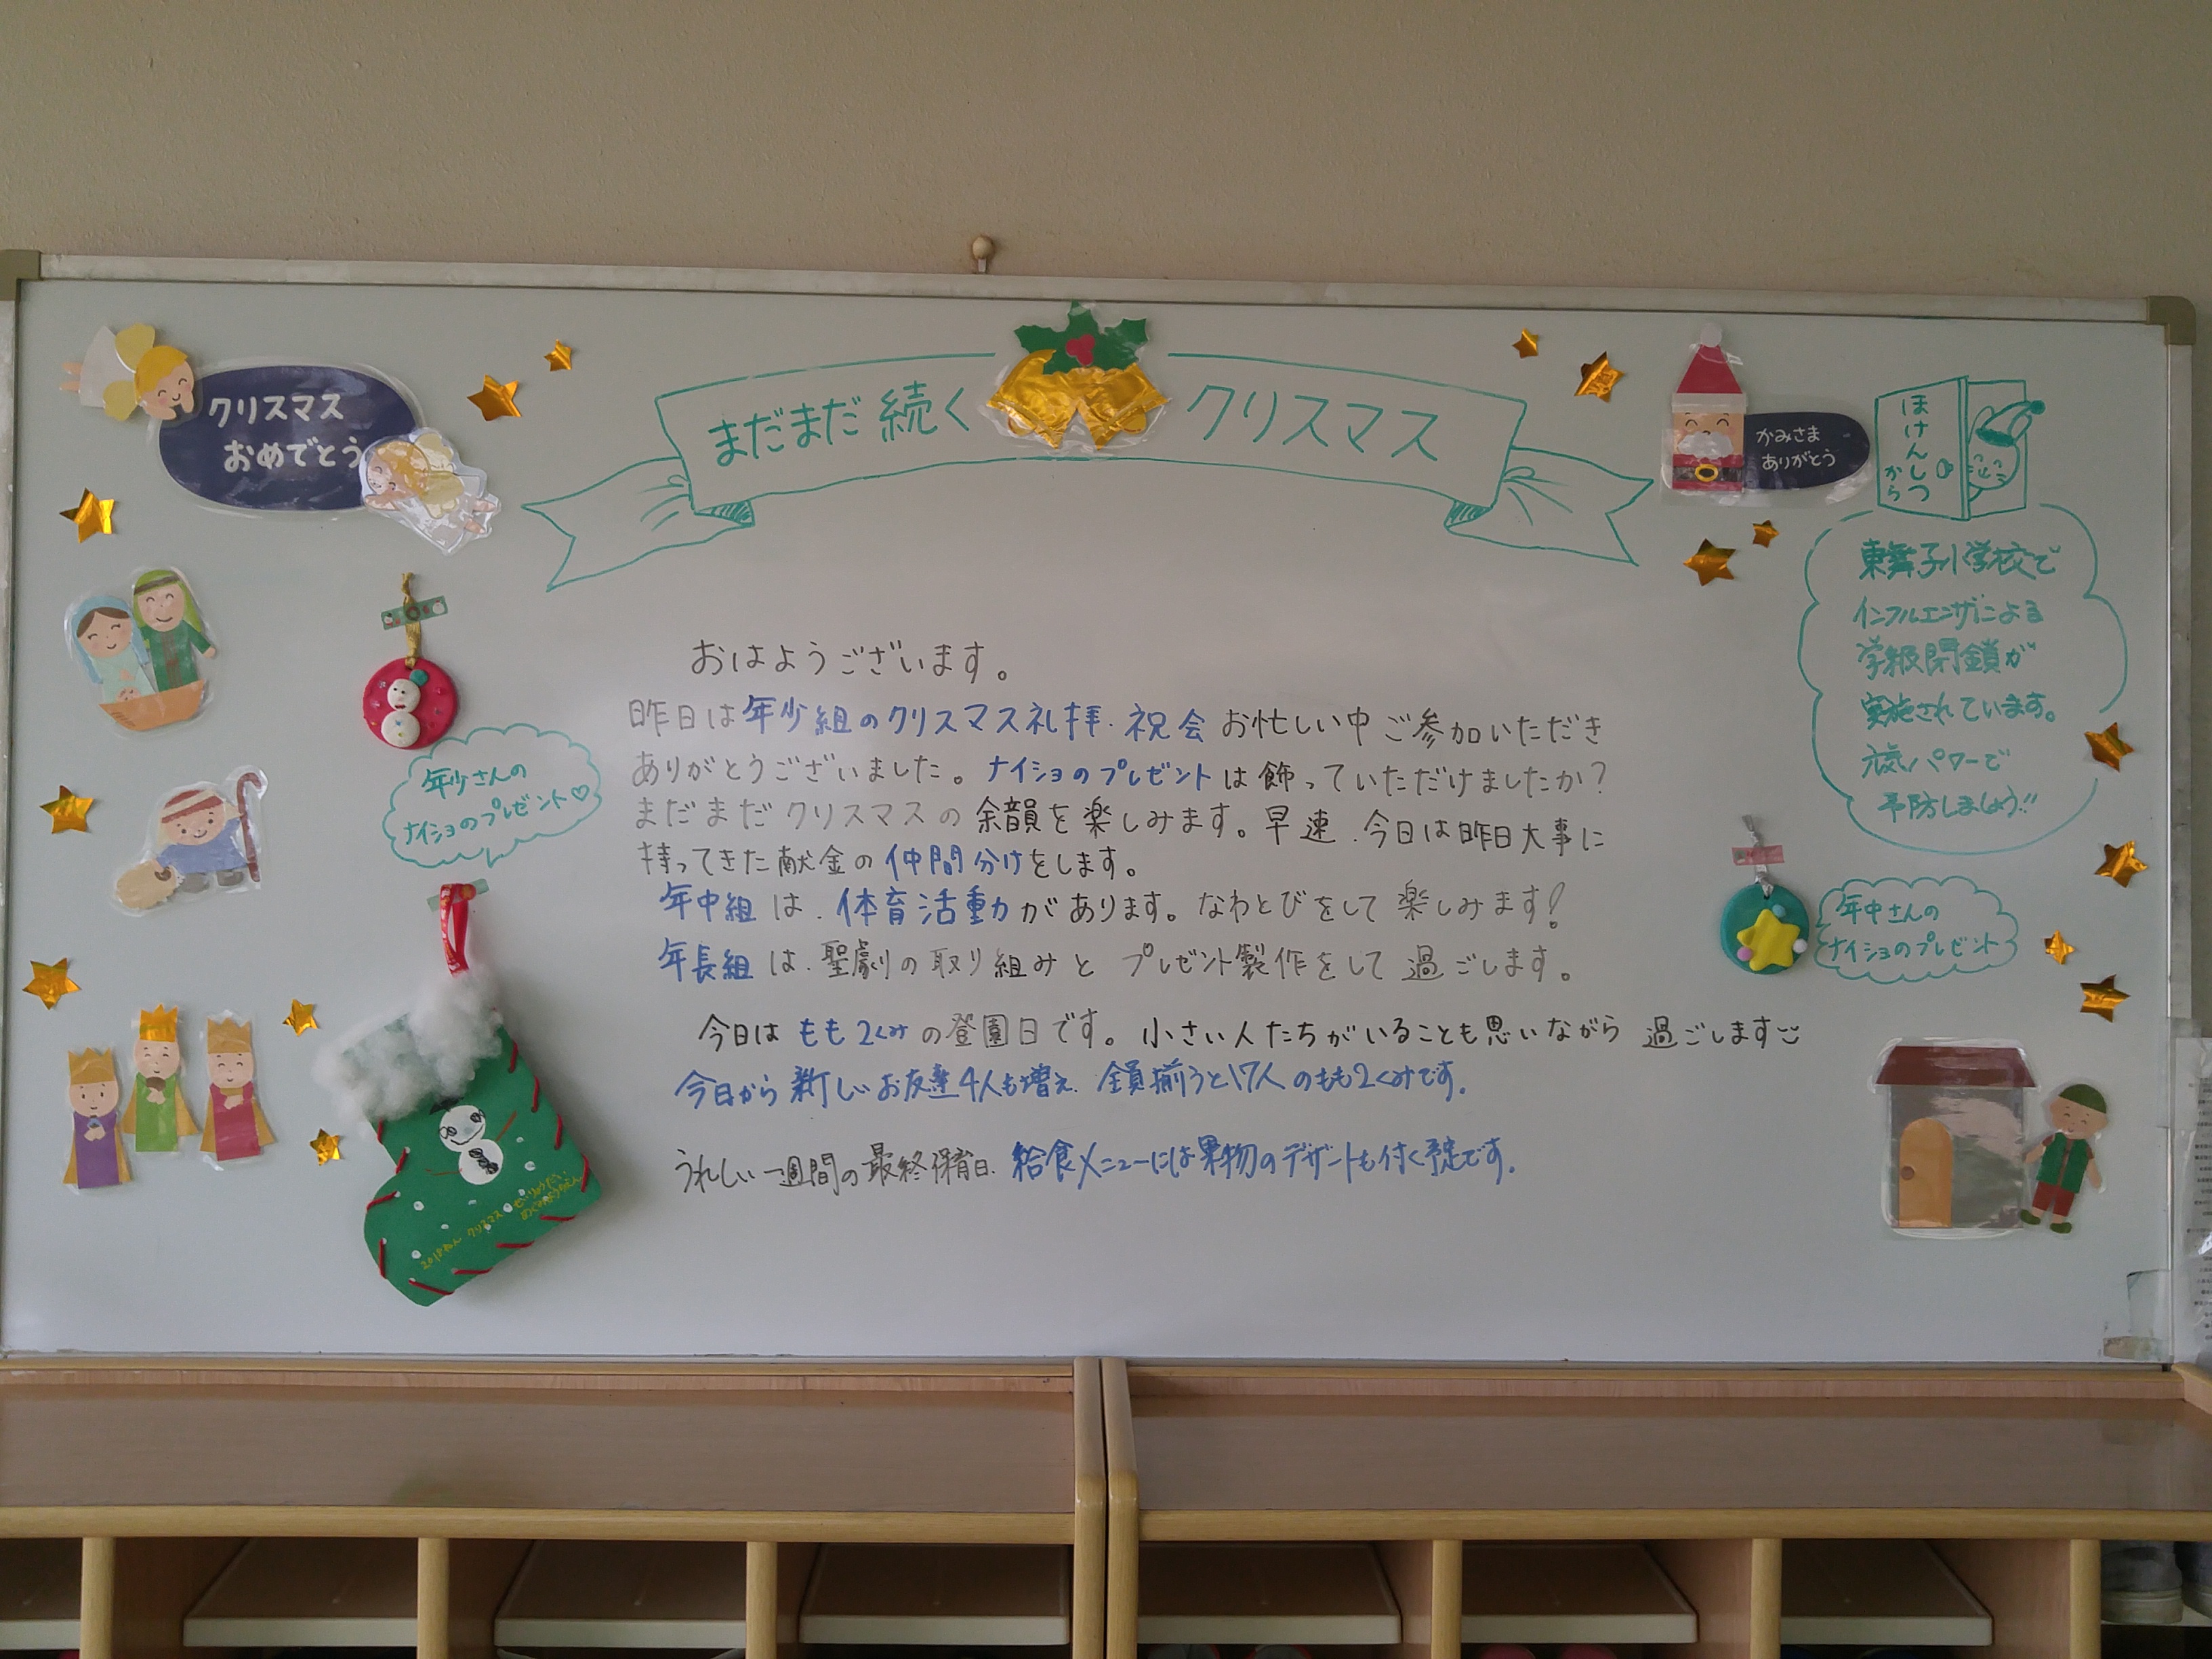 クリスマス
おめでとう
まだまだ続く クリスマス
かみさま
ありがとう
ほけんしつ
から
東舞子小学校で
インフルエンザによる
学級閉鎖が
実施されています。
元気パワーで
予防しましょう!!
年少さんの
ナイショのプレゼント♡
おはようございます。
昨日は年少組のクリスマス礼拝・祝会 お忙しい中ご参加いただき
ありがとうございました。ナイショのプレゼントは飾っていただけましたか?
まだまだクリスマスの余韻を楽しみます。早速、今日は昨日大事に
持ってきた献金の仲間分けをします。
年中組は、体育活動があります。なわとびをして楽しみます!
年長組は、聖劇の取り組みと プレゼント製作をして過ごします。
今日はもも2くみの登園日です。小さい人たちがいることも思いながら 過ごします
今日から新しいお友達4人も増え、全員揃うと17人のもも2くみです。
うれしい一週間の最終保育日、給食メニューには果物のデザートも付く予定です。
年中さんの
ナイショのプレゼント
2018ねん クリスマス